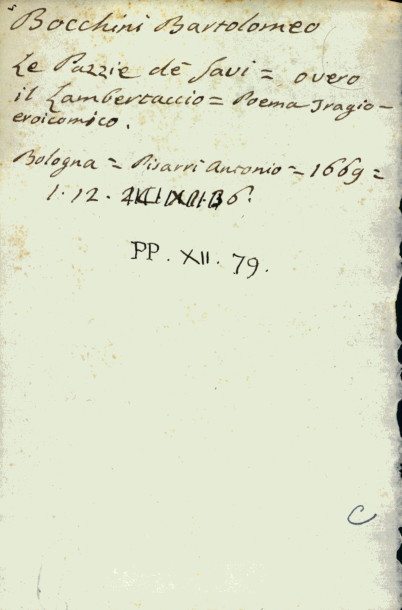 Bocchini Bartolomeo
Le Pazzie de Savi = overo
il Lambertaccio = Poema Tragio-
eroicomico.
Bologna = Pisarri Antonio = 1669 =
1. 12.
PP. XII. 79.
C